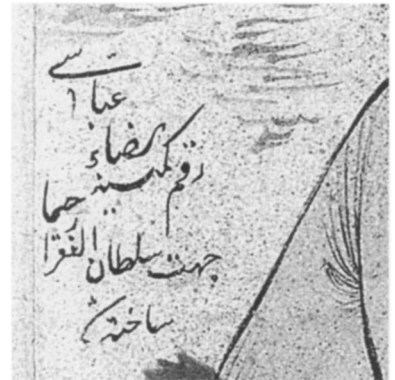 رقم کمینه رضاء عباسی
جهت سلطان الفقرا
ساخته شد